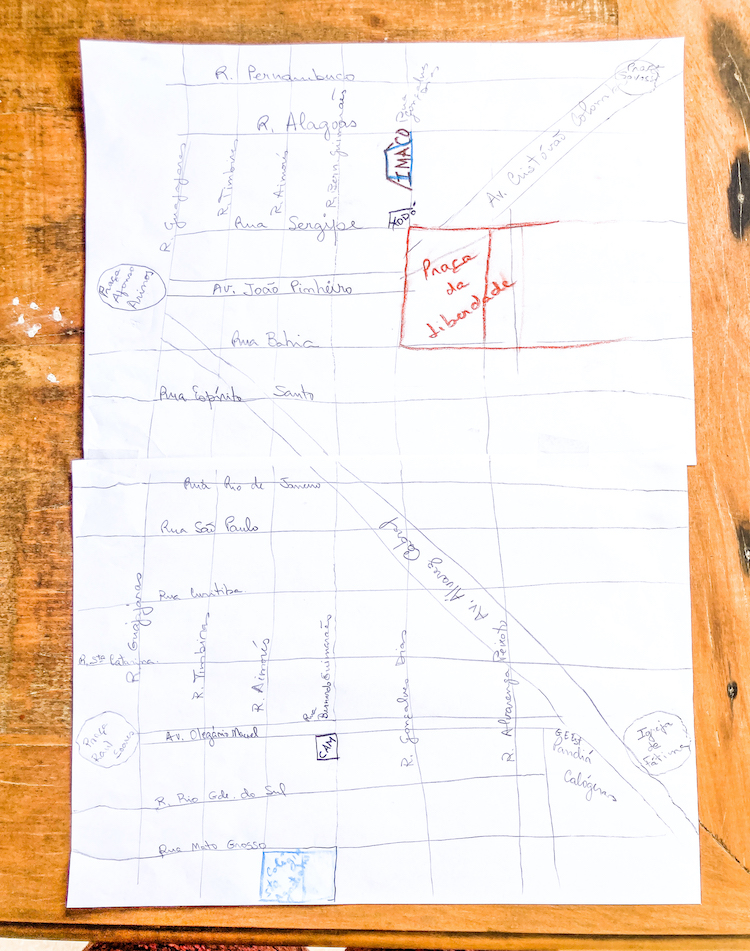 R. Pernambuco
Praça
R. Alagoas
Rua
Gonçalves
Dias
Av. Cristóvão Colombo
IMACO
R. Guajajaras
R. Timbiras
R. Aimorés
Rua Sergipe
Praça
Afonso
Arinos
Av. João Pinheiro
Praça
da
Liberdade
Rua Bahia
Rua Espírito Santo
Rua Rio de Janeiro
Rua São Paulo
Av. Álvares Cabral
Rua Curitiba
R. Guajajaras
R. Timbiras
R. Aimorés
Rua
Bernardo Guimarães
R. Gonçalves Dias
R. Alvarenga Peixoto
R. Sta Catarina
Praça
Raul
Soares
Av. Olegário Maciel
Pandiá
Calógeras
Igreja
de
Fátima
R. Rio Gde. do Sul
Rua Mato Grosso